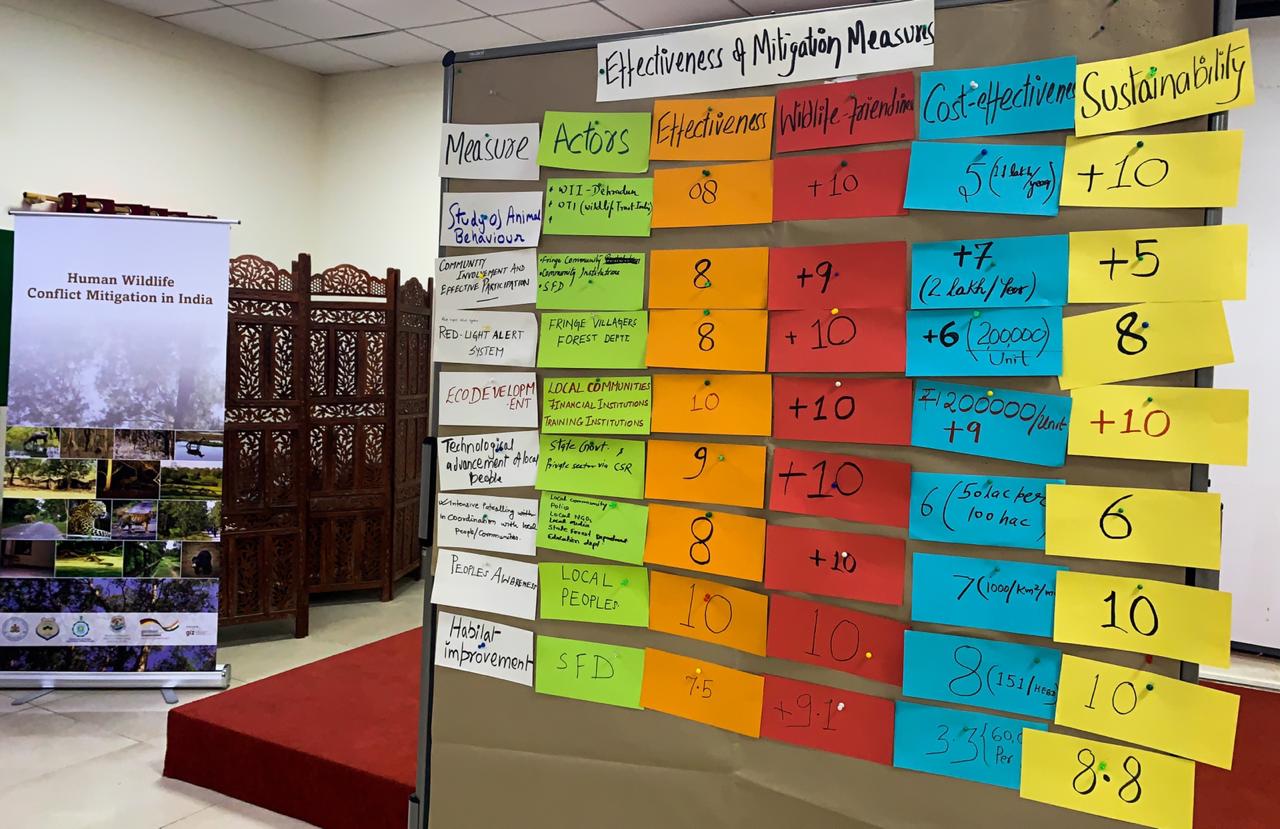 Effectiveness of Mitigation Measures
Measure
Actors
Effectiveness
Wildlife-friendline
Cost-effectivene
Sustainability
Study of Animal
Behaviour
• WII-Dehradun
• WTI (Wildlife Trust India)
08
+10
5 (11 lakh
/year)
+10
COMMUNITY
INVOLVEMENT AND
EFFECTIVE PARTICIPATION
• Fringe Community
• Community Institutions
• SFD
8
+9
+7
(2 lakh/Year)
+5
RED-LIGHT ALERT
SYSTEM
FRINGE VILLAGERS
FOREST DEPTT
8
+10
+6 (200000)
Unit
8
ECODEVELOPM
ENT
LOCAL COMMUNITIES
FINANCIAL INSTITUTIONS
TRAINING INSTITUTIONS
10
+10
1200000/unit
+9
+10
Technological
advancement of local
people
State Govt.
Private sector via CSR
9
+10
6 (50 lac per
100 hac
6
Intensive Patrolling within
in Coordination with local
People/Communities.
Local community
Police
Local NGOs
Local Media
State Forest Department
Education dept
8
+10
7 (1000/km²/m
10
PEOPLES AWARENESS
LOCAL
PEOPLES
10
10
8 (151/
10
Habitat
improvement
SFD
7.5
+9.1
3.3 (60,0
Per
8.8
Human Wildlife
Conflict Mitigation in India
giz